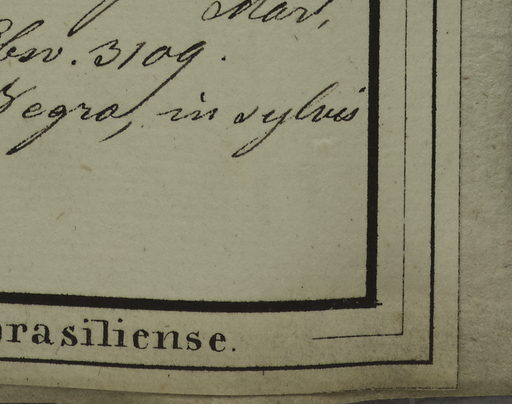 Mart,
Obsv. 3109.
Negra, in sylvis
brasiliense.